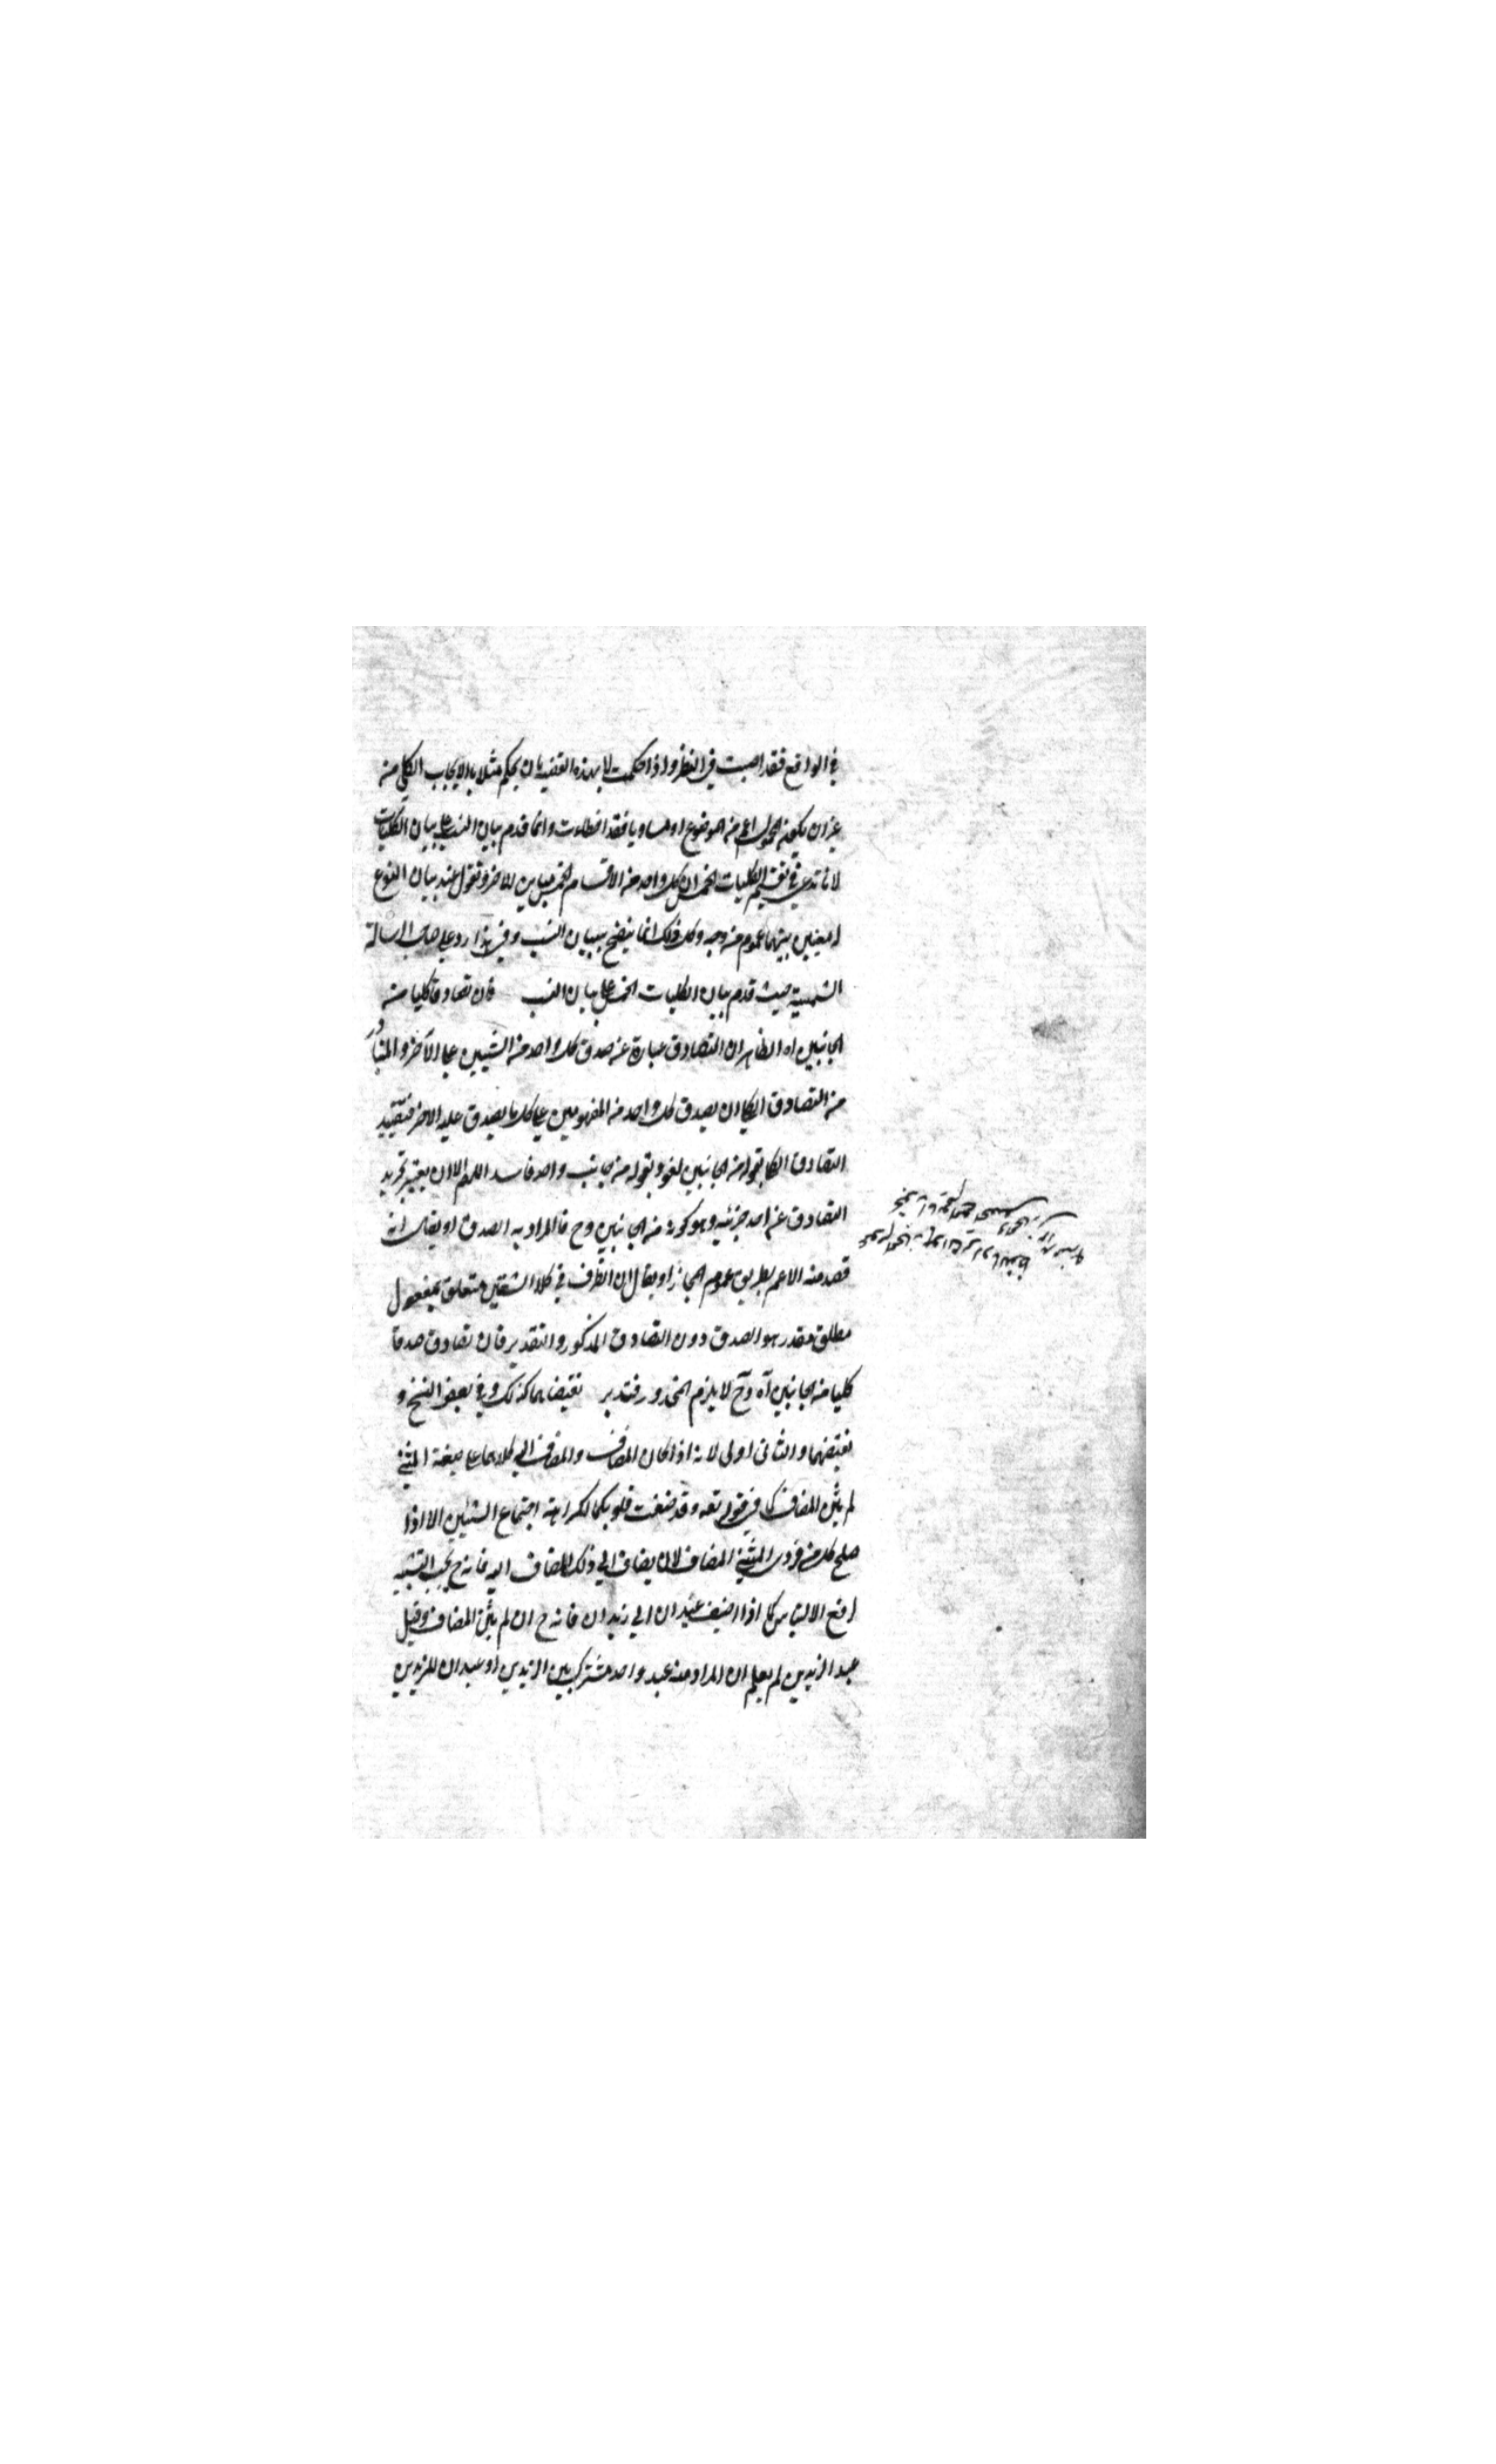 في الواقع فقد اصبت في النظر واذا حكمت لا بهذه القضية بان يحكم مثلا بالايجاب الكلي منه
غير ان يكون المحمول اعم من الموضوع او مساويا فقد اخطاءت وانما قدم بيان النسب على بيان الكليات
لانا ندعي في تقسيم الكليات الخمس ان كل واحد من الاقسام الخمس مباين للاخر ونقول عند بيان النوع
المعنيين بينهما عموم من وجه وكل ذلك انما يتضح ببيان النسب وفي هذا رد على صاحب الرسالة
الشمسية حيث قدم بيان الكليات الخمس على بيان النسب فان تصادقا كليا من
الجانبين اه الظاهر ان التصادق عبارة عن صدق كل واحد من الشيئين على الآخر والمتبادر
من التصادق الكلي ان يصدق كل واحد من المفهومين على كل ما يصدق عليه الاخر فتقييد
التصادق الكلي بقوله من الجانبين لغو وبقوله من جانب واحد فاسد اللهم الا ان يعتبر تجريد
التصادق عن احد جزئيه وهو كونه من الجانبين وح فالمراد به الصدق او يقال انه
قصد منه الاعم بطريق عموم المجاز او يقال ان الظرف في كلا الشقين متعلق بمفعول
مطلق مقدر هو الصدق دون التصادق المذكور والتقدير فان تصادق صدقا
كليا من الجانبين آه وح لا يلزم المحذور فتدبر نقيضاهما كذلك وفي بعض النسخ و
نقيضهما والثاني اولى لانه اذا كان المضاف والمضاف اليه كلاهما على صيغة المثنى
لم يثن المضاف كما في قوله تعه وقد صغت قلوبكما لكراهة اجتماع التثنيتين الا اذا
صلح كل من فردى المثنى المضاف لان يضاف الى ذلك المضاف اليه فانه ح يجب التثنية
لدفع الالتباس كما اذا اضيف عبدان الى زيدان فانه ح ان لم يثن المضاف وقيل
عبد الزيدين لم يعلم ان المراد منه عبد واحد مشترك بين الزيدين او عبدان للزيدين